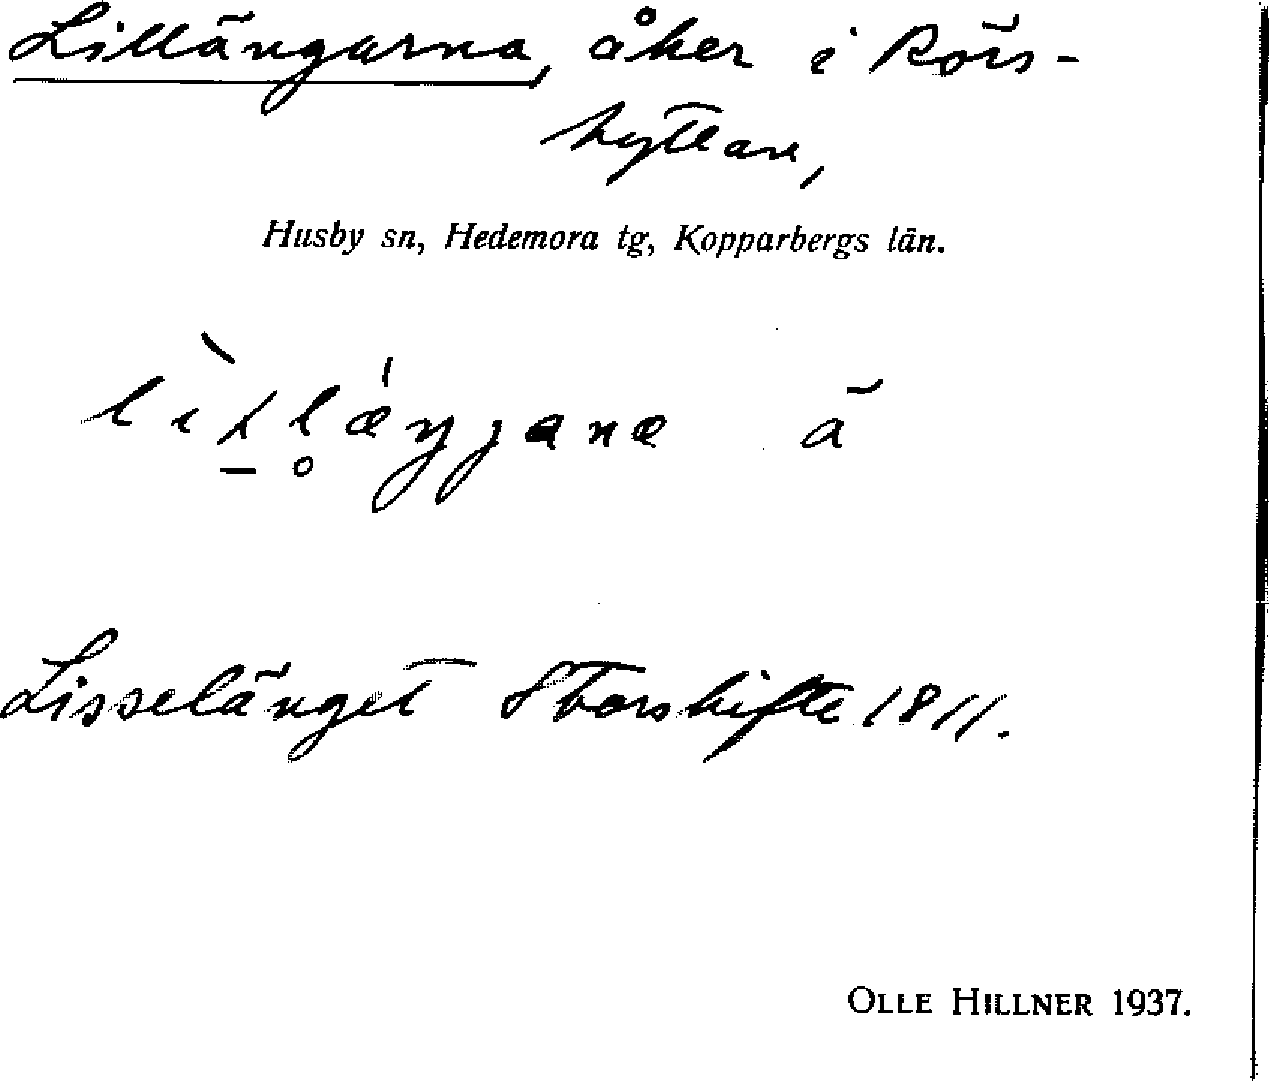 Lillängarna, åker i Rörs-
hyttan,
Husby sn, Hedemora tg, Kopparbergs län.
ä
Lisselänget Storskifte 1811.
OLLE HILLNER 1937.